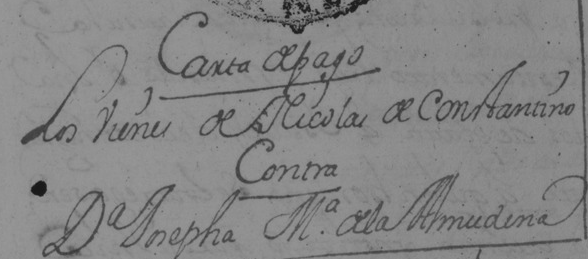 Carta de pago
Los vienes de Nicolas de Constantino
Contra
D.ª Josepha M.ª de la Almudena